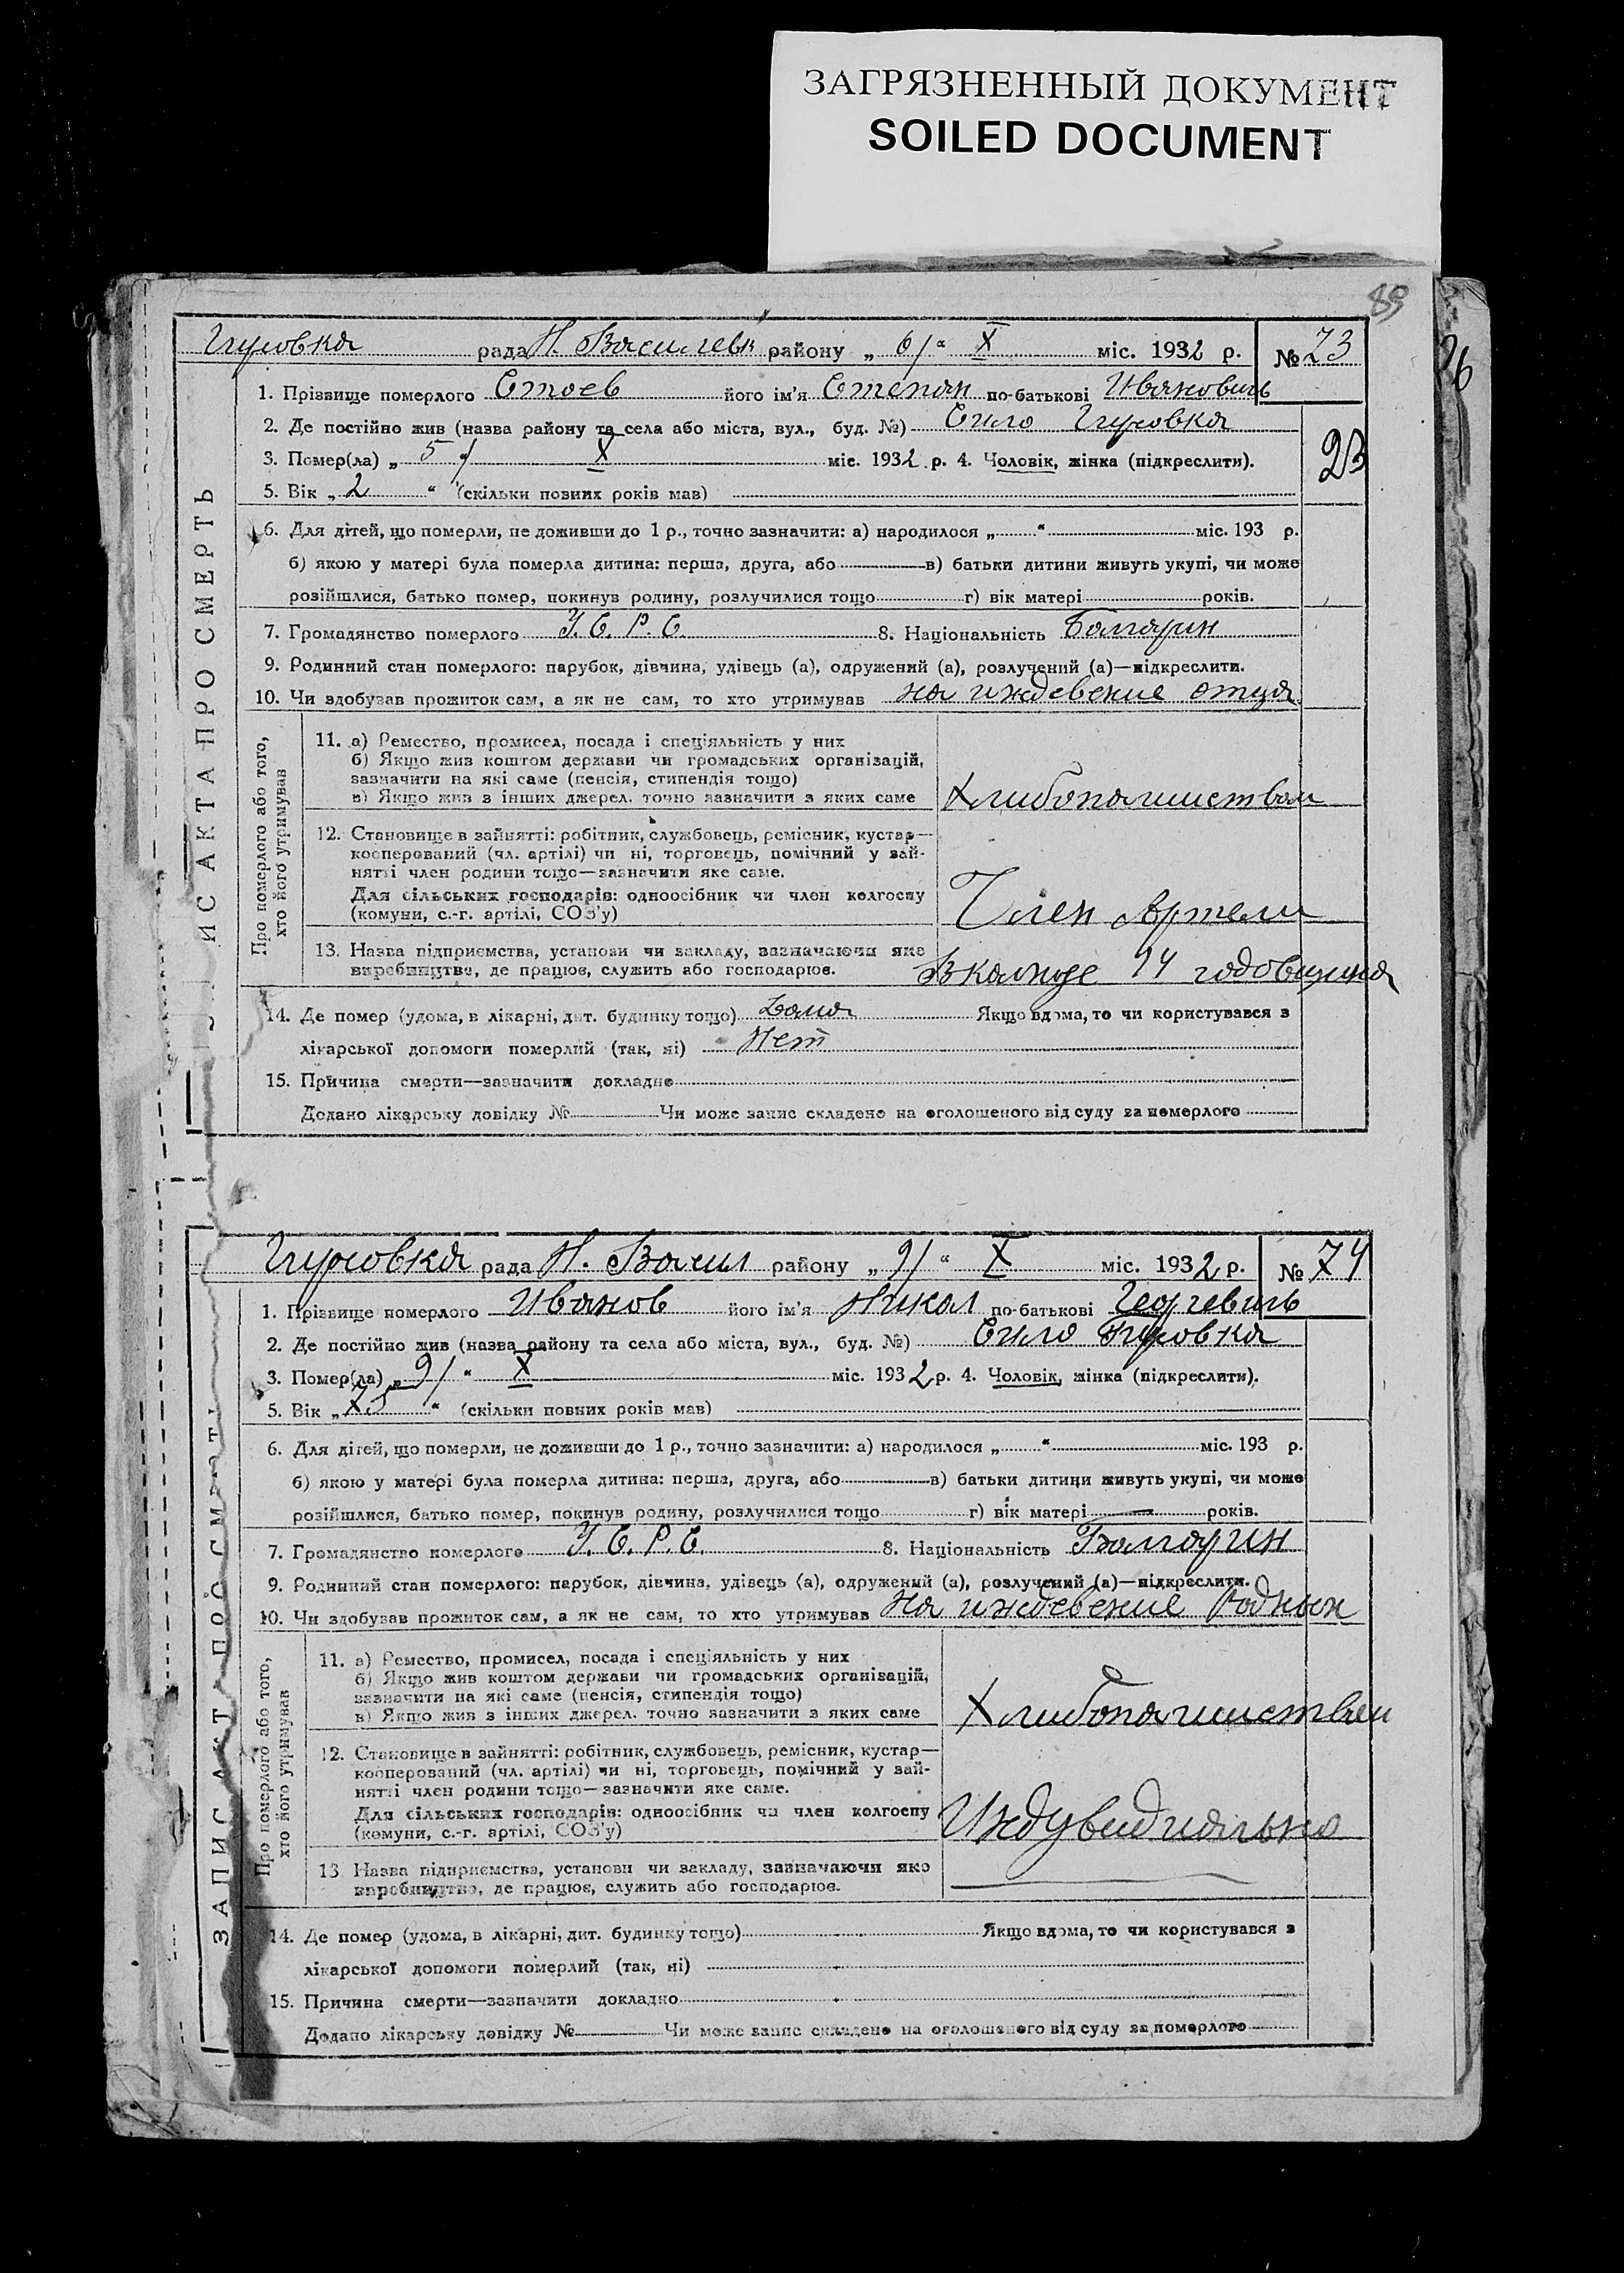 ЗАГРЯЗНЕННЫЙ ДОКУМЕНТ
SOILED DOCUMENT
89
Гуровка рада Н. Василевк району „ 6/“ X міс. 1932 р. № 73
1. Прізвище померлого Стоев його ім'я Степан по-батькові Иванович
2. Де постійно жив (назва району та села або міста, вул., буд. №) Сило Гуровка
3. Помер(ла) „ 5 “/ X міс. 1932 р. 4. Чоловік, жінка (підкреслити).
23
5. Вік „ 2 “ (скільки повних років мав)
6. Для дітей, що померли, не доживши до 1 р., точно зазначити: а) народилося „ “ міс. 193 р.
б) якою у матері була померла дитина: перша, друга, або в) батьки дитини живуть укупі, чи може
розійшлися, батько помер, покинув родину, розлучилися тощо г) вік матері років.
7. Громадянство померлого У. С. Р. С. 8. Національність Болгарин
9. Родинний стан померлого: парубок, дівчина, удівець (а), одружений (а), розлучений (а)—підкреслити.
10. Чи здобував прожиток сам, а як не сам, то хто утримував на иждевение отца
ЗАПИС АКТА ПРО СМЕРТЬ
Про померлого або того, хто його утримував
11. а) Ремество, промисел, посада і спеціяльність у них
б) Якщо жив коштом держави чи громадських організацій,
зазначити на які саме (пенсія, стипендія тощо)
в) Якщо жив з інших джерел, точно зазначити з яких саме Хлибопашиством
12. Становище в зайнятті: робітник, службовець, ремісник, кустар—
кооперований (чл. артілі) чи ні, торговець, помічний у зай-
нятті член родини тощо—зазначити яке саме.
Для сільських господарів: одноосібник чи член колгоспу
(комуни, с.-г. артілі, СОЗ'у) Член Артели
13. Назва підприємства, установи чи закладу, зазначаючи яке
виробництво, де працює, служить або господарює. В колхозе 14 годовщина
14. Де помер (удома, в лікарні, дит. будинку тощо) Дома Якщо вдома, то чи користувався з
лікарської допомоги померлий (так, ні) Нет
15. Причина смерти—зазначити докладно
Додано лікарську довідку № Чи може запис складено на оголошеного від суду за померлого
Гуровка рада Н. Васил району „ 9/ “ X міс. 1932 р. № 74
1. Прізвище померлого Иванов його ім'я Никол по-батькові Георгевич
2. Де постійно жив (назва району та села або міста, вул., буд. №) Сило Гуровка
3. Помер(ла) „ 9/ “ X міс. 1932 р. 4. Чоловік, жінка (підкреслити).
5. Вік „ 75 “ (скільки повних років мав)
6. Для дітей, що померли, не доживши до 1 р., точно зазначити: а) народилося „ “ міс. 193 р.
б) якою у матері була померла дитина: перша, друга, або в) батьки дитини живуть укупі, чи може
розійшлися, батько помер, покинув родину, розлучилися тощо г) вік матері років.
7. Громадянство померлого У. С. Р. С. 8. Національність Болгарин
9. Родинний стан померлого: парубок, дівчина, удівець (а), одружений (а), розлучений (а)—підкреслити.
10. Чи здобував прожиток сам, а як не сам, то хто утримував на иждевение Родных
ЗАПИС АКТ ПО СМ
Про померлого або того, хто його утримував
11. а) Ремество, промисел, посада і спеціяльність у них
б) Якщо жив коштом держави чи громадських організацій,
зазначити на які саме (пенсія, стипендія тощо)
в) Якщо жив з інших джерел, точно зазначити з яких саме Хлибопашиством
12. Становище в зайнятті: робітник, службовець, ремісник, кустар—
кооперований (чл. артілі) чи ні, торговець, помічний у зай-
нятті член родини тощо—зазначити яке саме.
Для сільських господарів: одноосібник чи член колгоспу
(комуни, с.-г. артілі, СОЗ'у) Индувидиально
13 Назва підприємства, установи чи закладу, зазначаючи яке
виробництво, де працює, служить або господарює.
14. Де помер (удома, в лікарні, дит. будинку тощо) Якщо вдома, то чи користувався з
лікарської допомоги померлий (так, ні)
15. Причина смерти—зазначити докладно
Додано лікарську довідку № Чи може запис складено на оголошеного від суду за померлого